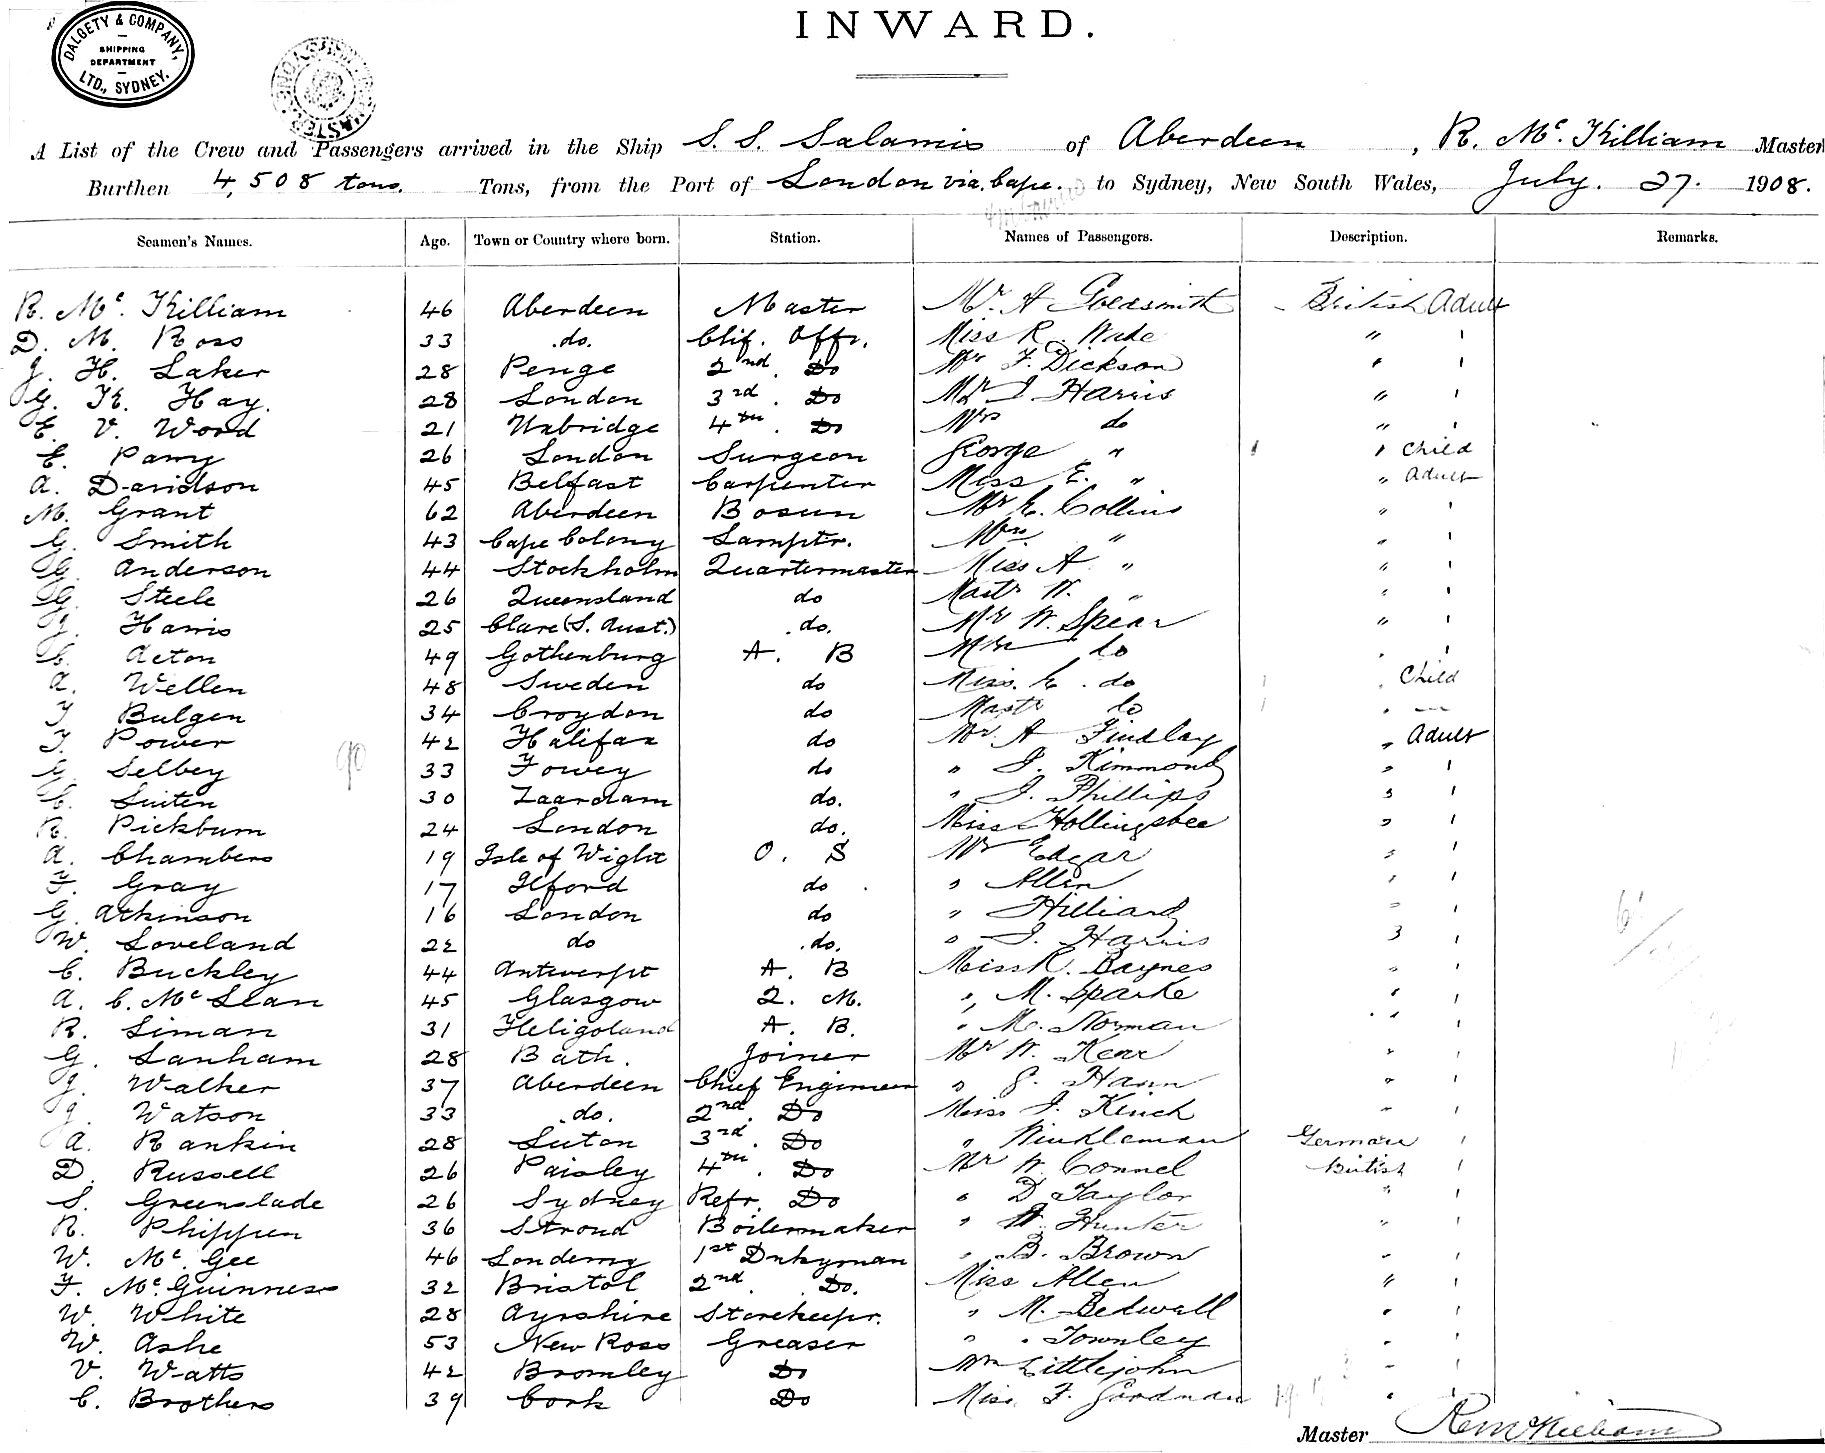 INWARD.
DALGETY & COMPANY,
SHIPPING
DEPARTMENT
LTD., SYDNEY.
A List of the Crew and Passengers arrived in the Ship S. S. Salamis of Aberdeen, R. Mc. Killiam Master
Burthen 4,508 tons. Tons, from the Port of London via Cape. to Sydney, New South Wales, July. 27. 1908.
Seamen's Names. Age. Town or Country where born. Station. Names of Passengers. Description. Remarks.
R. Mc. Killiam 46 Aberdeen Master Mr. A Goldsmith British Adult
D. M. Ross 33 do. Chf. Offr. Miss R. Wade " '
J. H. Laker 28 Penge 2nd. Do Mr F. Dickson " '
G. K. Hay. 28 London 3rd. Do Mr J Harris " '
E. V. Word 21 Uxbridge 4th. Do Mrs do " '
E. Parry 26 London Surgeon George " " Child
A. Davidson 45 Belfast Carpenter Miss E. " " Adult
M. Grant 62 Aberdeen Bosun Mr E. Collins " '
G. Smith 43 Cape Colony Lamptr. Mrs " " '
G. Anderson 44 Stockholm Quartermaster Miss A " " '
G. Steele 26 Queensland do Mastr W. " " '
J. Harris 25 Clare (S. Aust.) do. Mr W. Spear " '
C. Acton 49 Gothenburg A. B Mrs do " '
A. Wellen 48 Sweden do Miss. E. do " Child
T Bulgen 34 Croydon do Mastr do " "
J. Power 42 Halifax do Mr. A Findlay " Adult
G Selbey 33 Fowey do " J. Kimmond " '
C. Luiten 30 Zaardam do. " J. Phillips " '
R. Pickburn 24 London do. Miss Hollingsbee " '
A. Chambers 19 Isle of Wight O. S Mr Edgar " '
F. Gray 17 Ilford do " Allen " '
G. Atkinson 16 London do " Hilliard " '
W. Loveland 22 do do. " J. Harris " '
C. Buckley 44 Antwerp A. B Miss R. Baynes " '
A. C. Mc Lean 45 Glasgow Q. M. " M. Sparke " '
R. Siman 31 Heligoland A. B. " M. Norman " '
G. Lanham 28 Bath. Joiner Mr W. Kear " '
J. Walker 37 Aberdeen Chief Engineer " J. Hann " '
J. Watson 33 do. 2nd. Do Miss J. Kinch " '
A. Rankin 28 Luton 3rd. Do " Winkleman German '
D. Russell 26 Paisley 4th. Do Mr W. Connel British '
S. Greenslade 26 Sydney Refr. Do " D Taylor " '
R. Phippen 36 Stroud Boilermaker " W. Hunter " '
W. Mc. Gee 46 Londerry 1st Dnkyman " B. Brown " '
F. Mc. Guinness 32 Bristol 2nd. Do. Miss Allen " '
W. White 28 Ayrshire Storekeepr. " M. Bedwall " '
W. Ashe 53 New Ross Greaser " " Townley " '
V. Watts 42 Bromley Do Mrs Littlejohn " '
C. Brothers 39 Cork Do Miss F. Goodman " '
Master